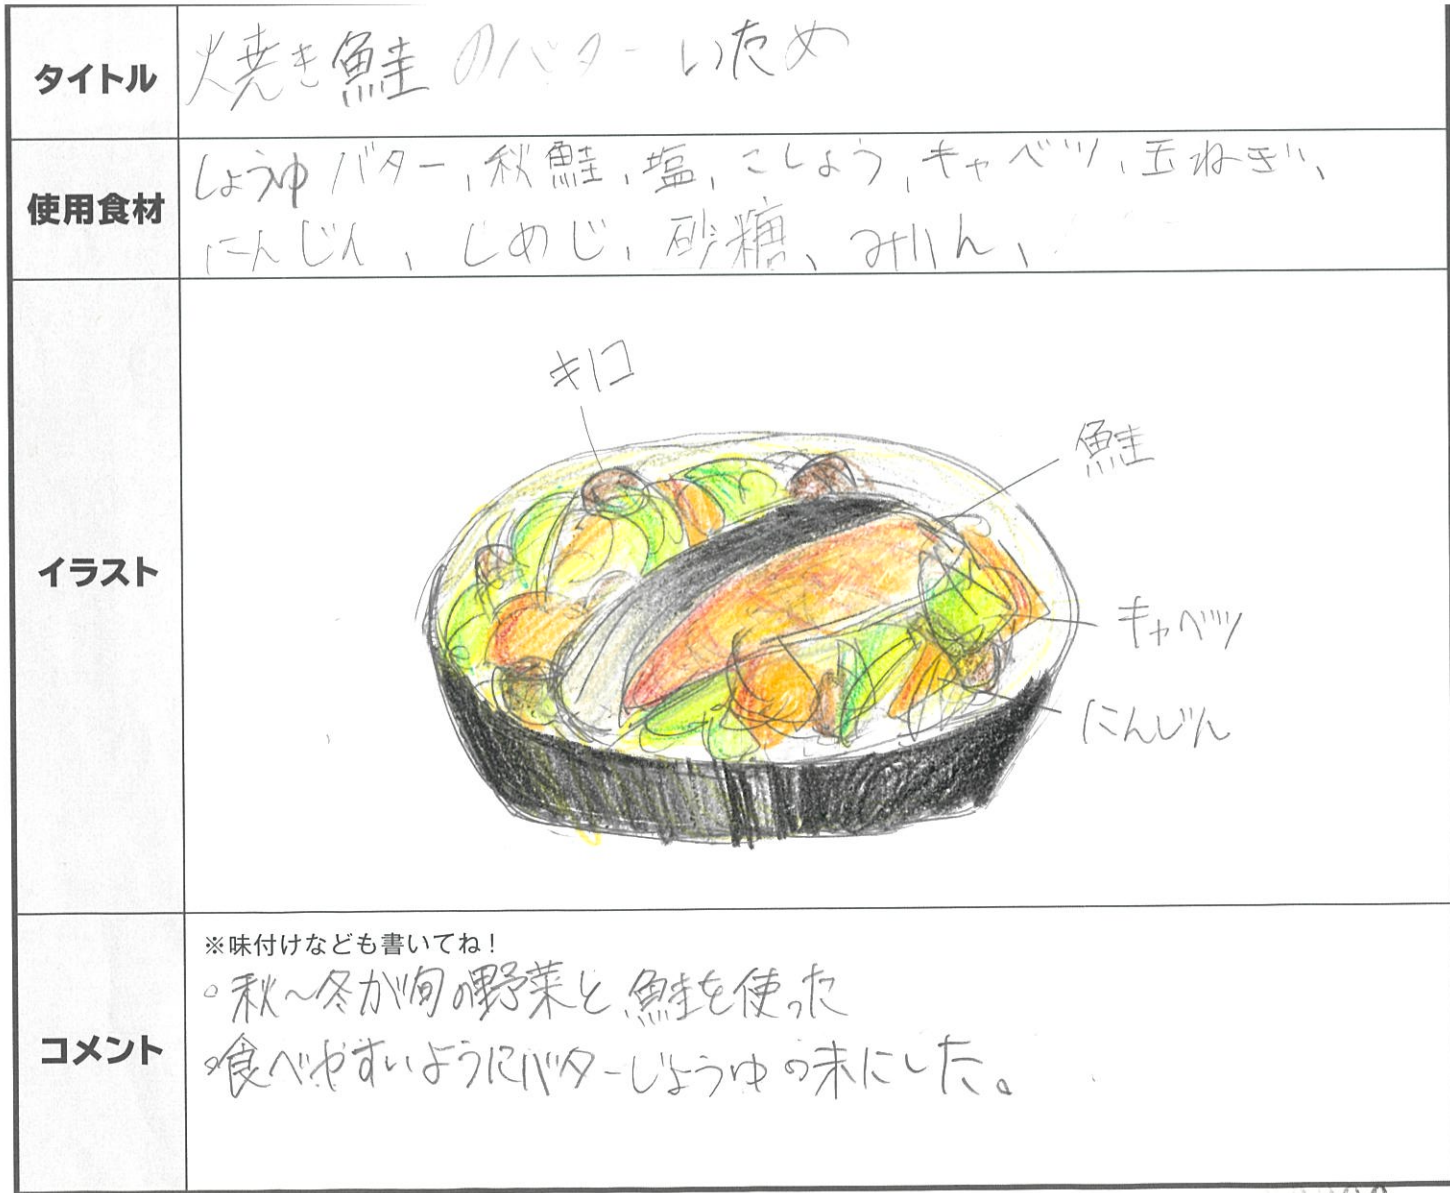 タイトル
焼き鮭のバターいため
使用食材
しょうゆバター、秋鮭、塩、こしょう、キャベツ、玉ねぎ、
にんじん、しめじ、砂糖、みりん、
イラスト
キノコ
鮭
キャベツ
にんじん
コメント
※味付けなども書いてね!
・秋〜冬が旬の野菜と鮭を使った
・食べやすいようにバターじょうゆの味にした。